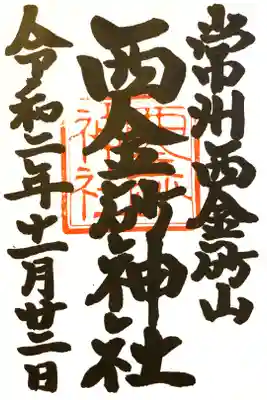 常州西金砂山
西金砂神社
令和二年十一月廿三日
西金砂
神社